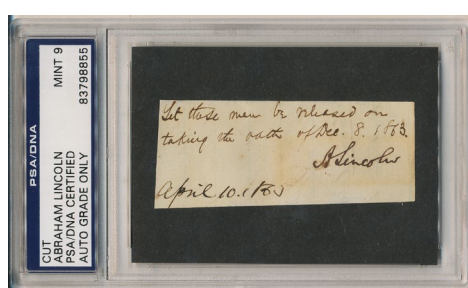 PSA/DNA
CUT
ABRAHAM LINCOLN
PSA/DNA CERTIFIED
AUTO GRADE ONLY
MINT 9
83798855
Let these men be released on
taking the oath of Dec. 8. 1863.
A Lincoln
April 10. 1865